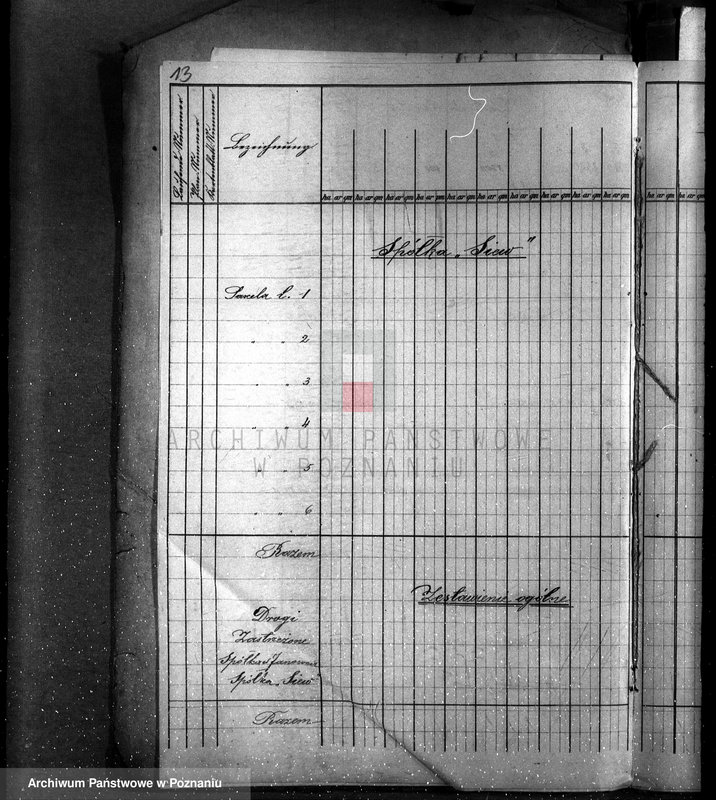 13
Laufende Nummer
Plan-Nummer
Bezeichnung
ha ar qm ha ar qm ha ar qm ha ar qm ha ar qm ha ar qm ha ar qm ha ar qm ha ar qm ha ar qm
Spółka „Siew"
Parcela L. 1
" " 2
" " 3
" " 4
" " 5
" " 6
ARCHIWUM PAŃSTWOWE
W POZNANIU
Razem
Zestawienie ogólne
Drogi
Zastrzeżone
Spółka
Spółka „Siew"
Razem
Archiwum Państwowe w Poznaniu